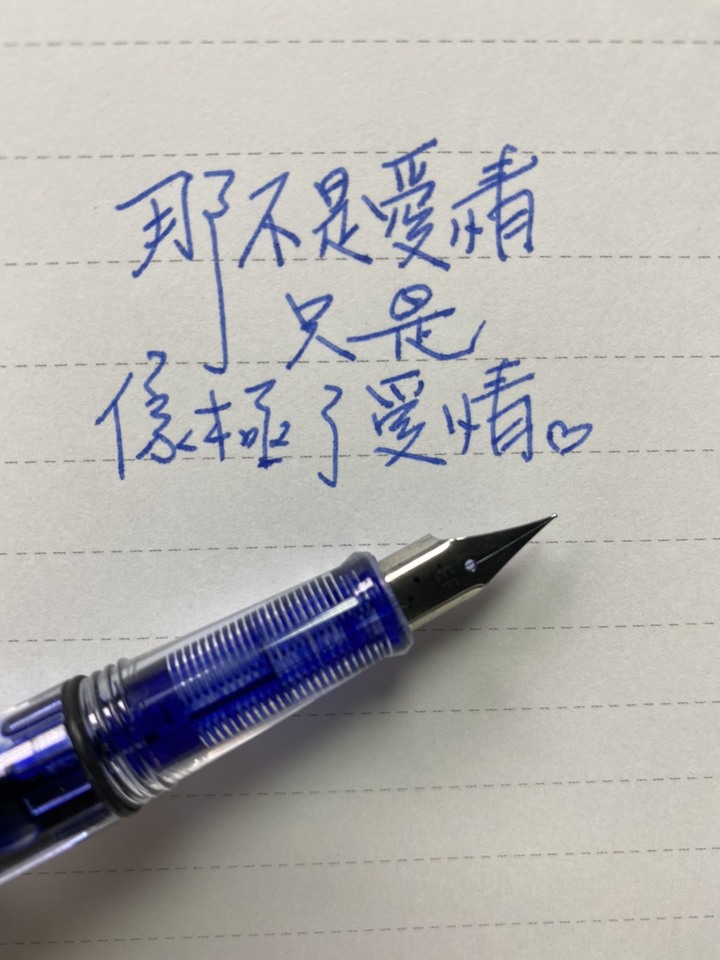 那不是愛情
只是
像極了愛情♡
EF